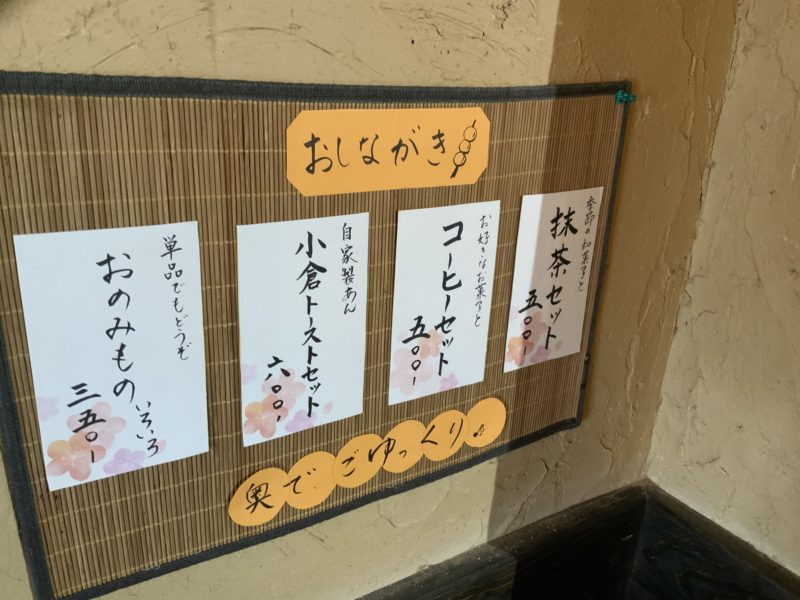 おしながき
季節の和菓子と
抹茶セット
五〇〇-
お好きなお菓子と
コーヒーセット
五〇〇-
自家製あん
小倉トーストセット
六〇〇-
単品でもどうぞ
おのみものいろいろ
三五〇-
奥でごゆっくり♪